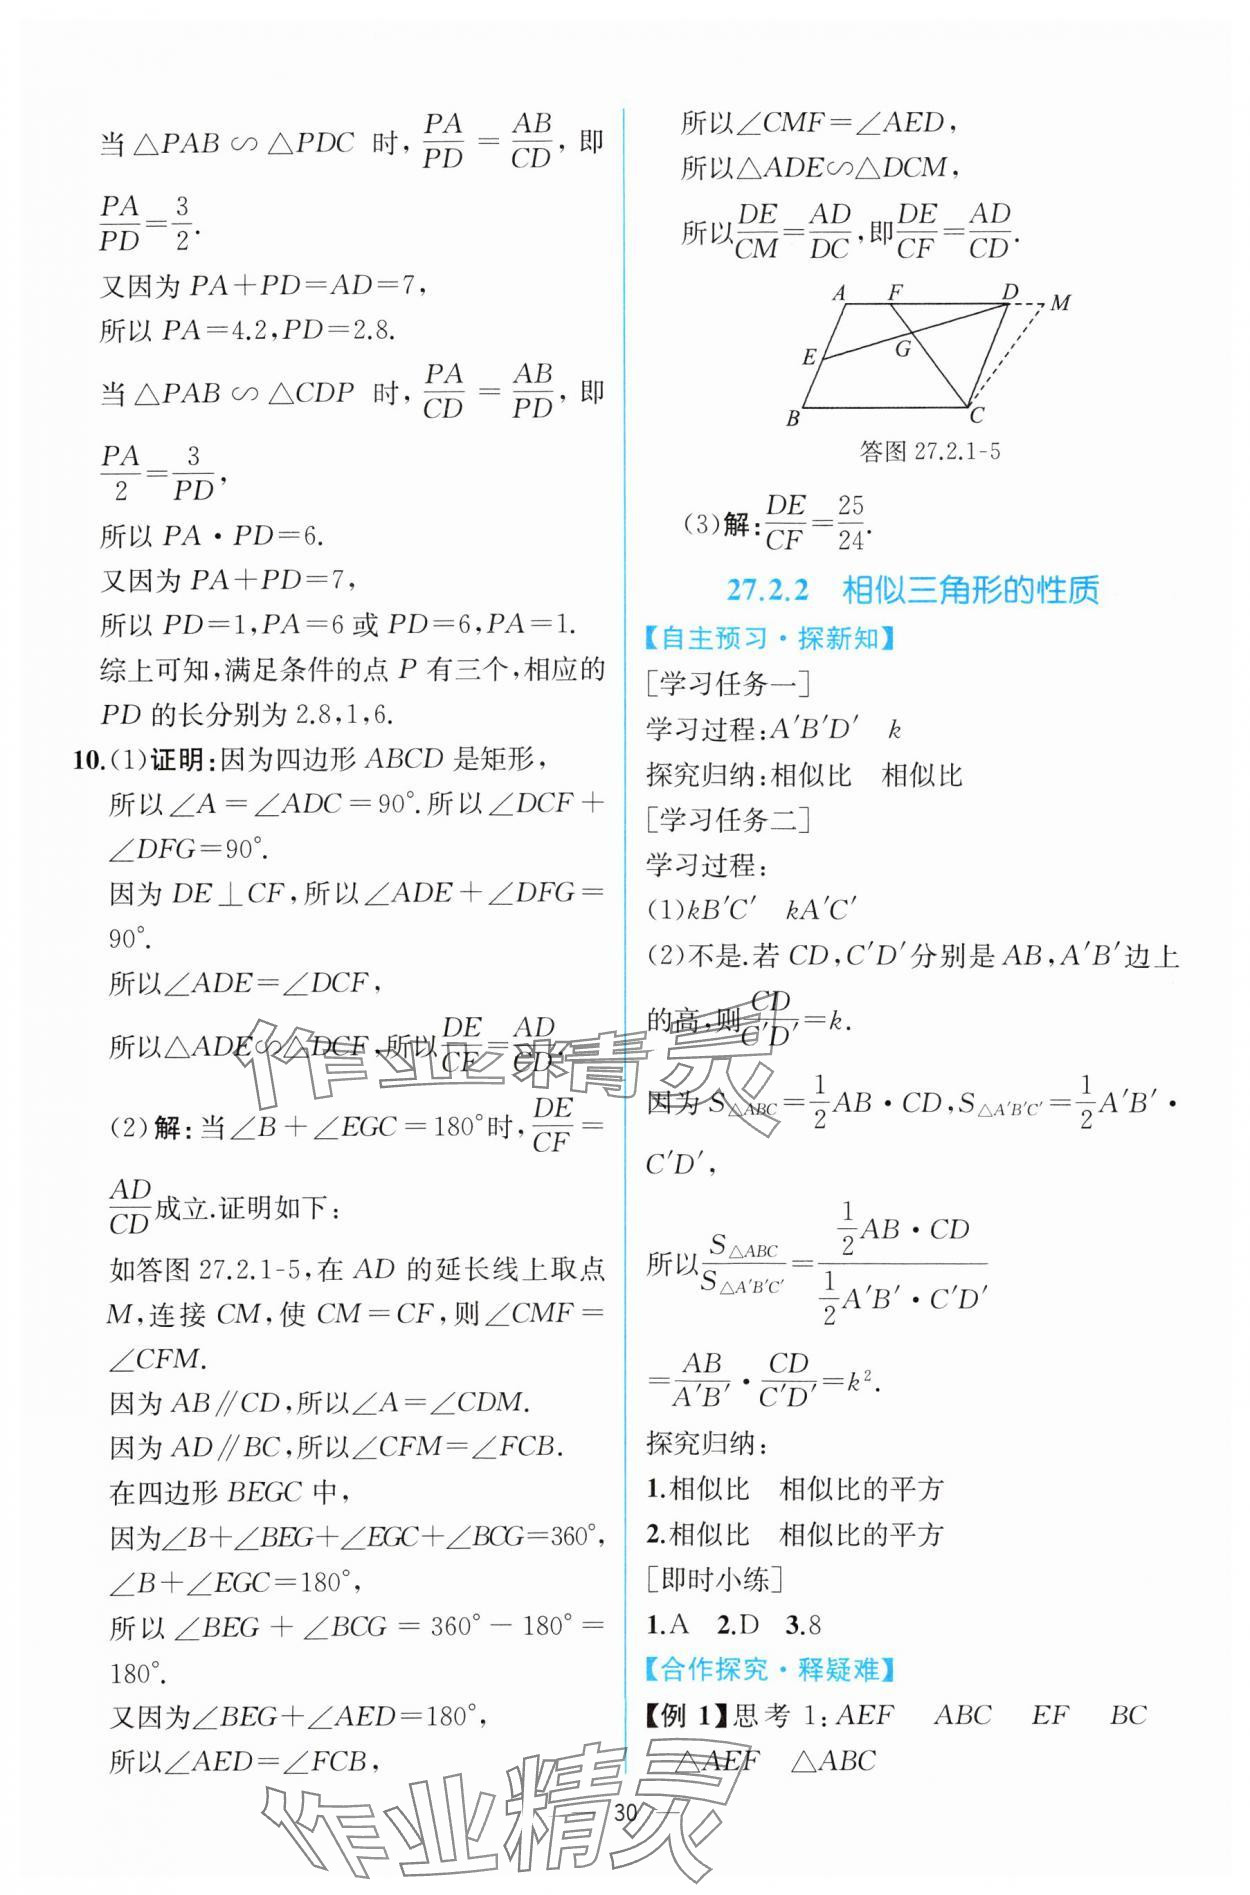 当△PAB∽△PDC 时,PA/PD=AB/CD,即
PA/PD=3/2.
又因为 PA+PD=AD=7,
所以 PA=4.2,PD=2.8.
当△PAB∽△CDP 时,PA/CD=AB/PD,即
PA/2=3/PD,
所以 PA·PD=6.
又因为 PA+PD=7,
所以 PD=1,PA=6 或 PD=6,PA=1.
综上可知,满足条件的点 P 有三个,相应的
PD 的长分别为 2.8,1,6.
10.(1)证明:因为四边形 ABCD 是矩形,
所以∠A=∠ADC=90°.所以∠DCF+
∠DFG=90°.
因为 DE⊥CF,所以∠ADE+∠DFG=
90°.
所以∠ADE=∠DCF,
所以△ADE∽△DCF,所以DE/CF=AD/CD.
(2)解:当∠B+∠EGC=180°时,DE/CF=
AD/CD成立.证明如下:
如答图 27.2.1-5,在 AD 的延长线上取点
M,连接 CM,使 CM=CF,则∠CMF=
∠CFM.
因为 AB∥CD,所以∠A=∠CDM.
因为 AD∥BC,所以∠CFM=∠FCB.
在四边形 BEGC 中,
因为∠B+∠BEG+∠EGC+∠BCG=360°,
∠B+∠EGC=180°,
所以∠BEG+∠BCG=360°-180°=
180°.
又因为∠BEG+∠AED=180°,
所以∠AED=∠FCB,
所以∠CMF=∠AED,
所以△ADE∽△DCM,
所以DE/CM=AD/DC,即DE/CF=AD/CD.
A F D M
E G
B C
答图 27.2.1-5
(3)解:DE/CF=25/24.
27.2.2 相似三角形的性质
【自主预习·探新知】
[学习任务一]
学习过程:A′B′D′ k
探究归纳:相似比 相似比
[学习任务二]
学习过程:
(1)kB′C′ kA′C′
(2)不是.若 CD,C′D′分别是 AB,A′B′边上
的高,则CD/C′D′=k.
因为 S△ABC=1/2AB·CD,S△A′B′C′=1/2A′B′·
C′D′,
所以S△ABC/S△A′B′C′=(1/2AB·CD)/(1/2A′B′·C′D′)
=AB/A′B′·CD/C′D′=k².
探究归纳:
1.相似比 相似比的平方
2.相似比 相似比的平方
[即时小练]
1.A 2.D 3.8
【合作探究·释疑难】
【例 1】思考 1:AEF ABC EF BC
△AEF △ABC
30
作业精灵
作业精灵